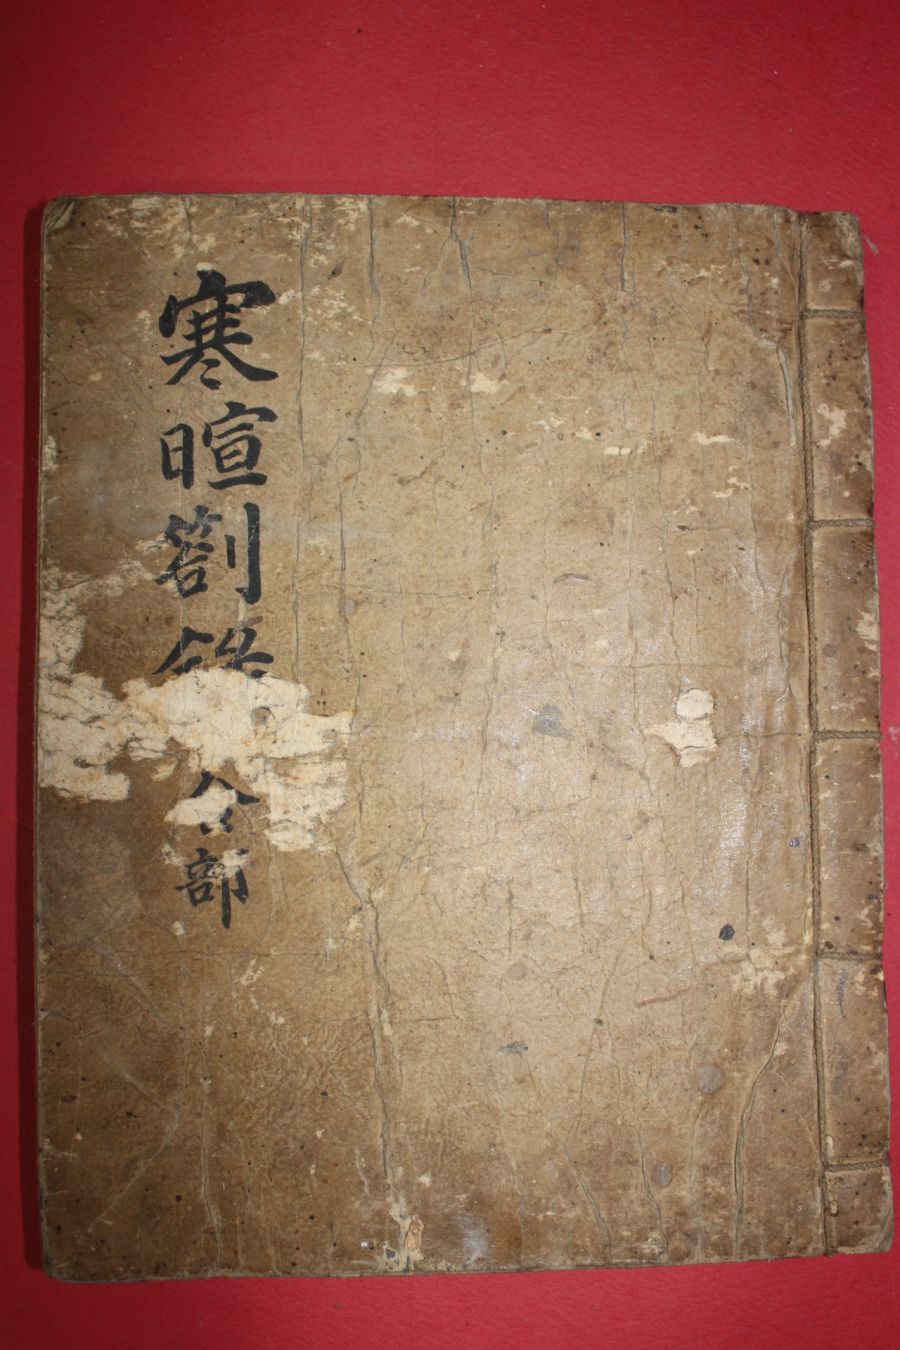 寒暄劄錄
部